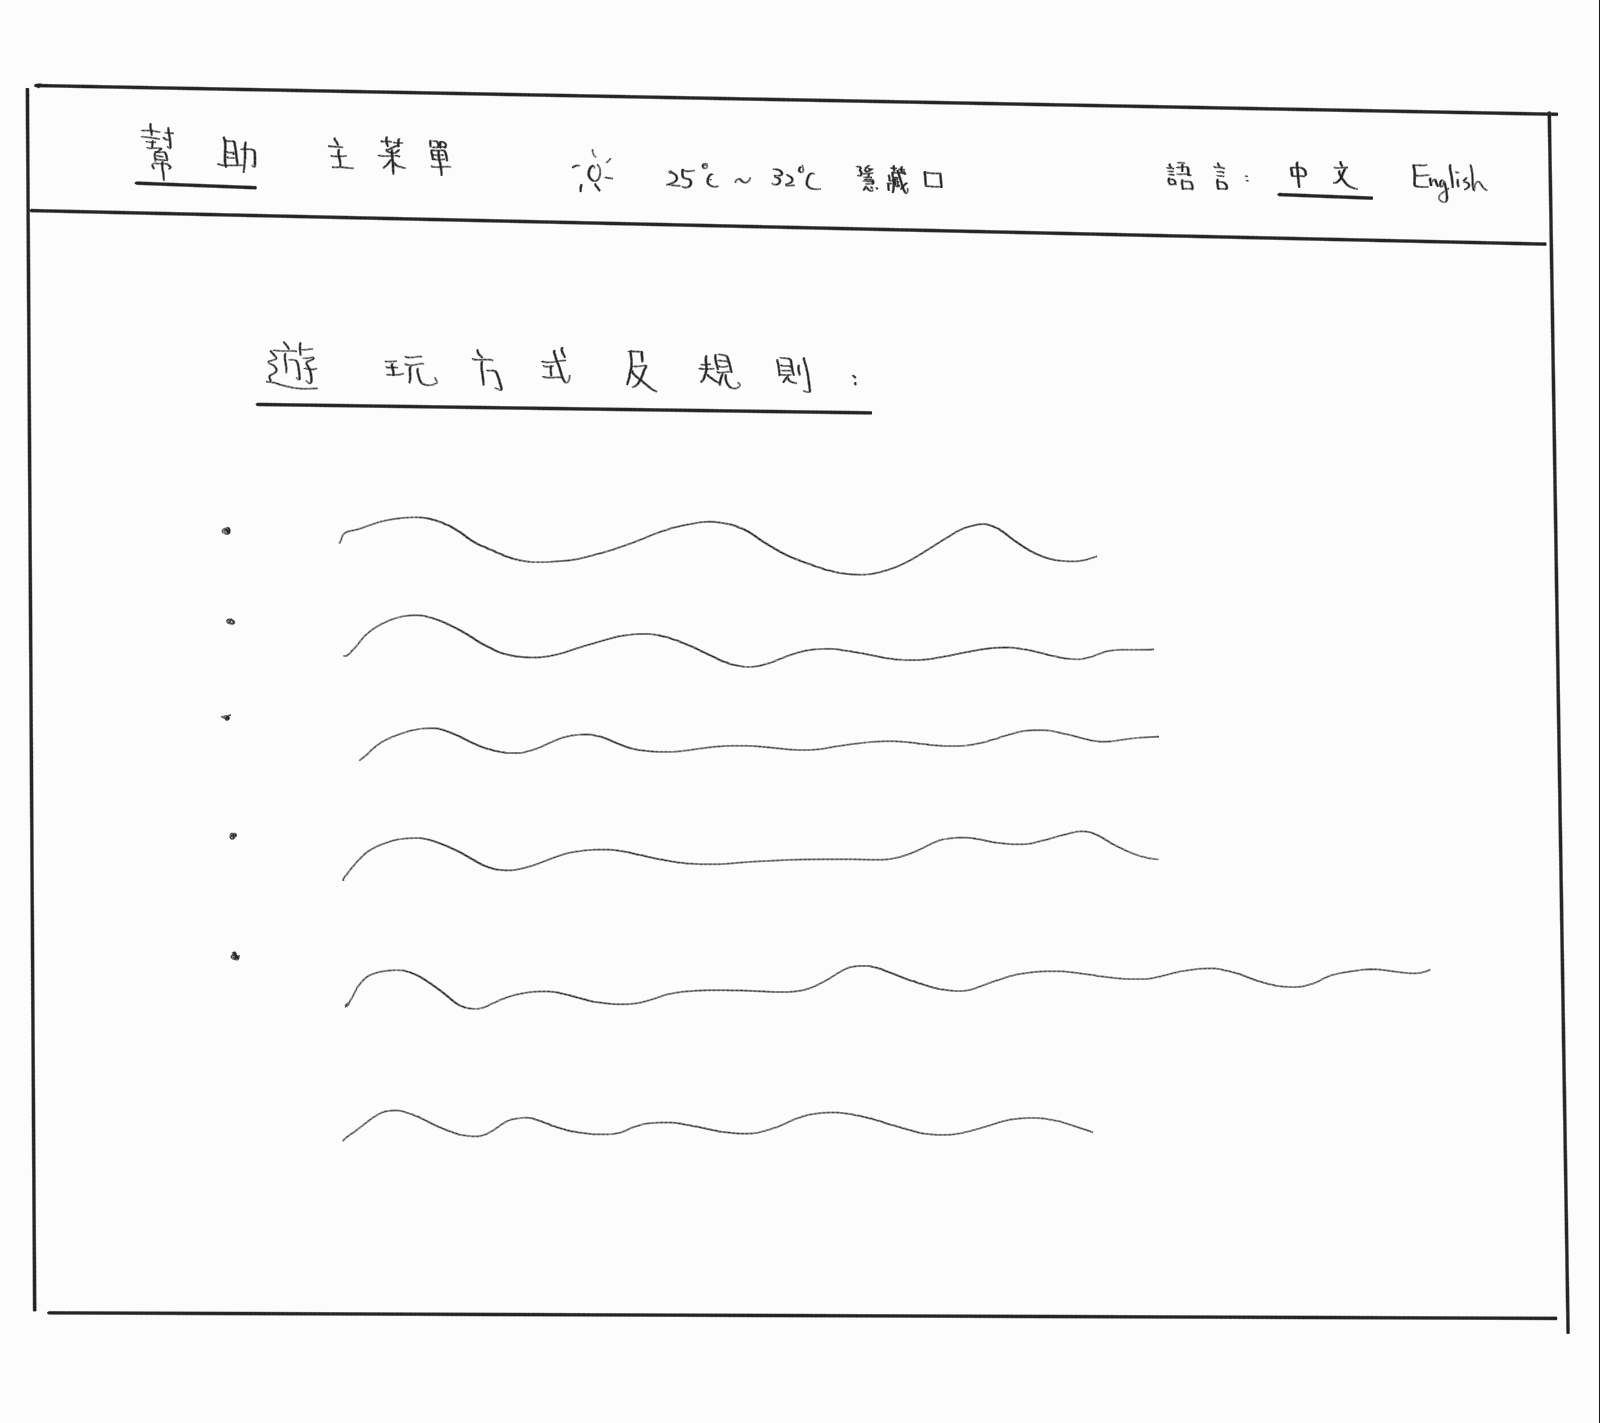 幫助 主菜單 25℃ ~ 32℃ 隱藏口 語言: 中文 English
遊玩方式及規則: